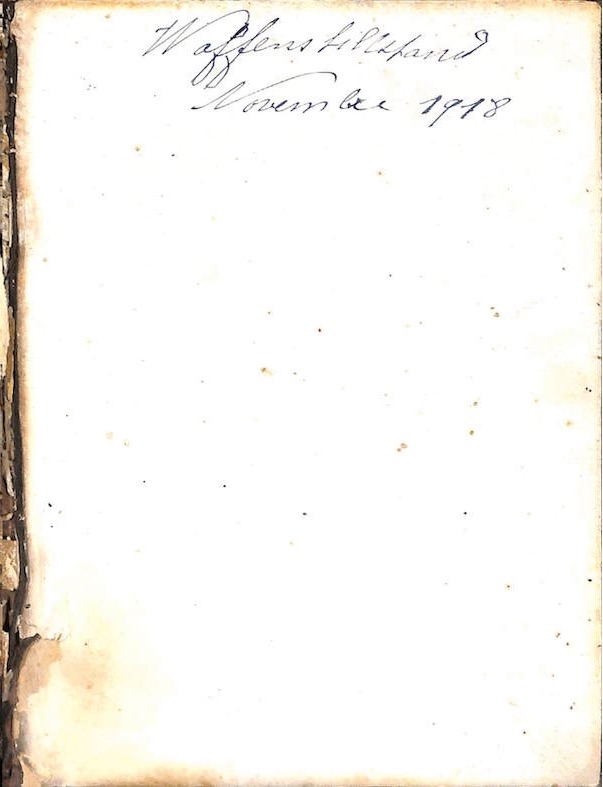 Waffenstillstand
November 1918